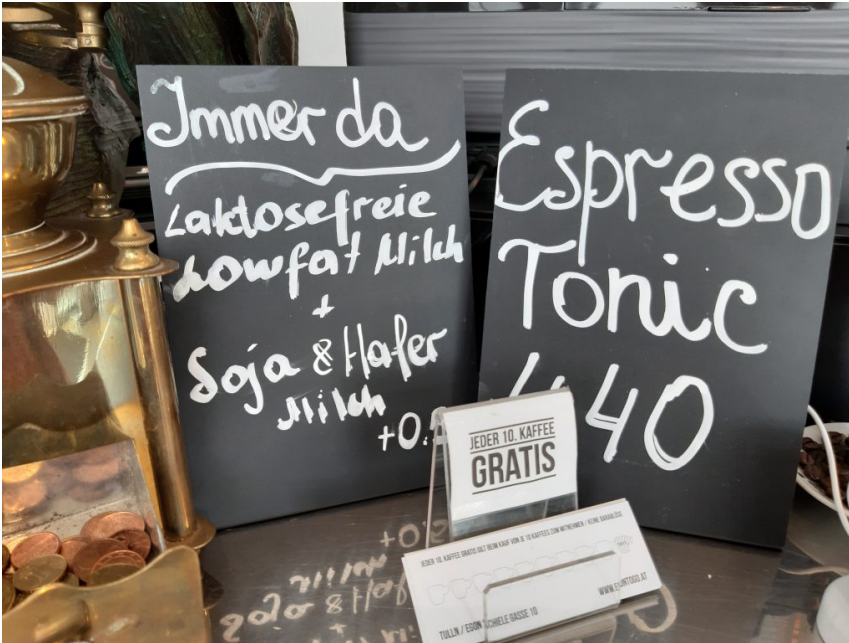 Immer da
Laktosefreie
Lowfat Milch
+
Soja & Hafer
Milch
+0.
Espresso
Tonic
40
JEDER 10. KAFFEE
GRATIS
JEDER 10. KAFFEE GRATIS GILT BEIM KAUF VON JE 10 KAFFEES ZUM MITNEHMEN / KEINE BARABLÖSE
TULLN / EGON SCHIELE GASSE 10